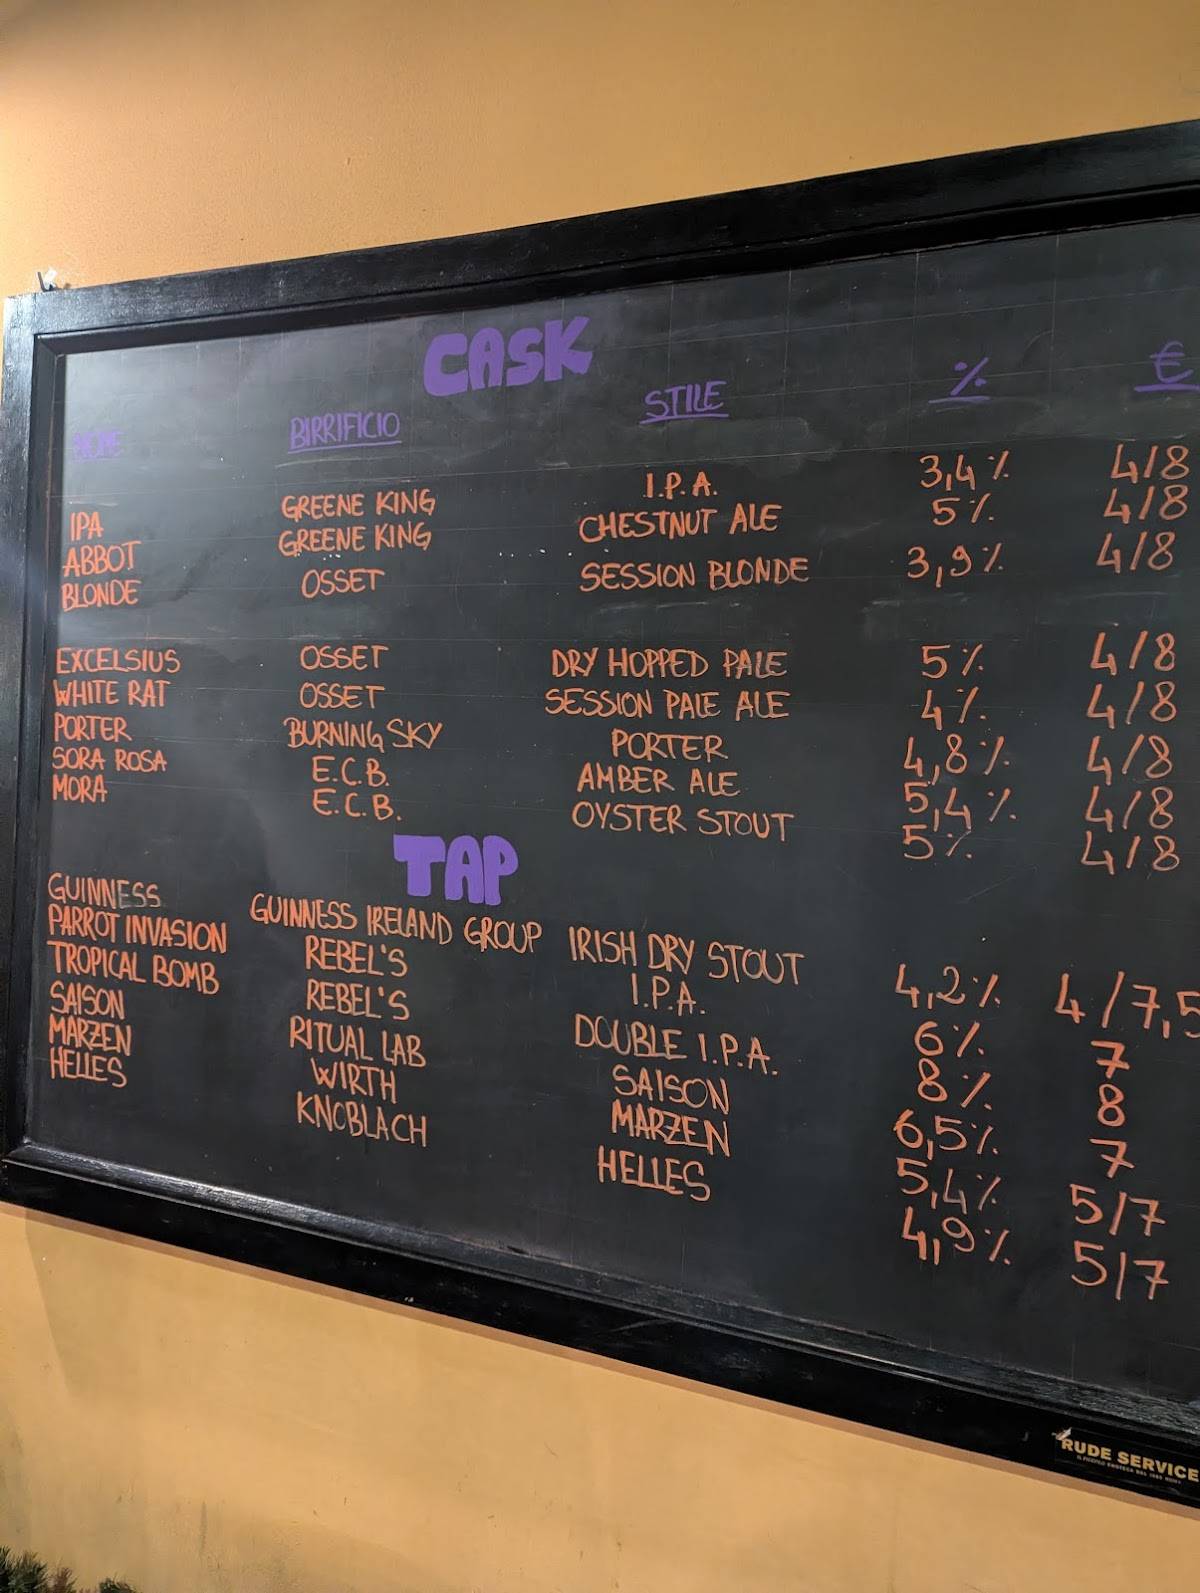 CASK
NOME BIRRIFICIO STILE % €
IPA GREENE KING I.P.A. 3,4% 4/8
ABBOT GREENE KING CHESTNUT ALE 5% 4/8
BLONDE OSSET SESSION BLONDE 3,9% 4/8
EXCELSIUS OSSET DRY HOPPED PALE 5% 4/8
WHITE RAT OSSET SESSION PALE ALE 4% 4/8
PORTER BURNING SKY PORTER 4,8% 4/8
SORA ROSA E.C.B. AMBER ALE 5,4% 4/8
MORA E.C.B. OYSTER STOUT 5% 4/8
TAP
GUINNESS GUINNESS IRELAND GROUP IRISH DRY STOUT 4,2% 4/7,5
PARROT INVASION REBEL'S I.P.A. 6% 7
TROPICAL BOMB REBEL'S DOUBLE I.P.A. 8% 8
SAISON RITUAL LAB SAISON 6,5% 7
MARZEN WIRTH MARZEN 5,4% 5/7
HELLES KNOBLACH HELLES 4,9% 5/7
RUDE SERVICE